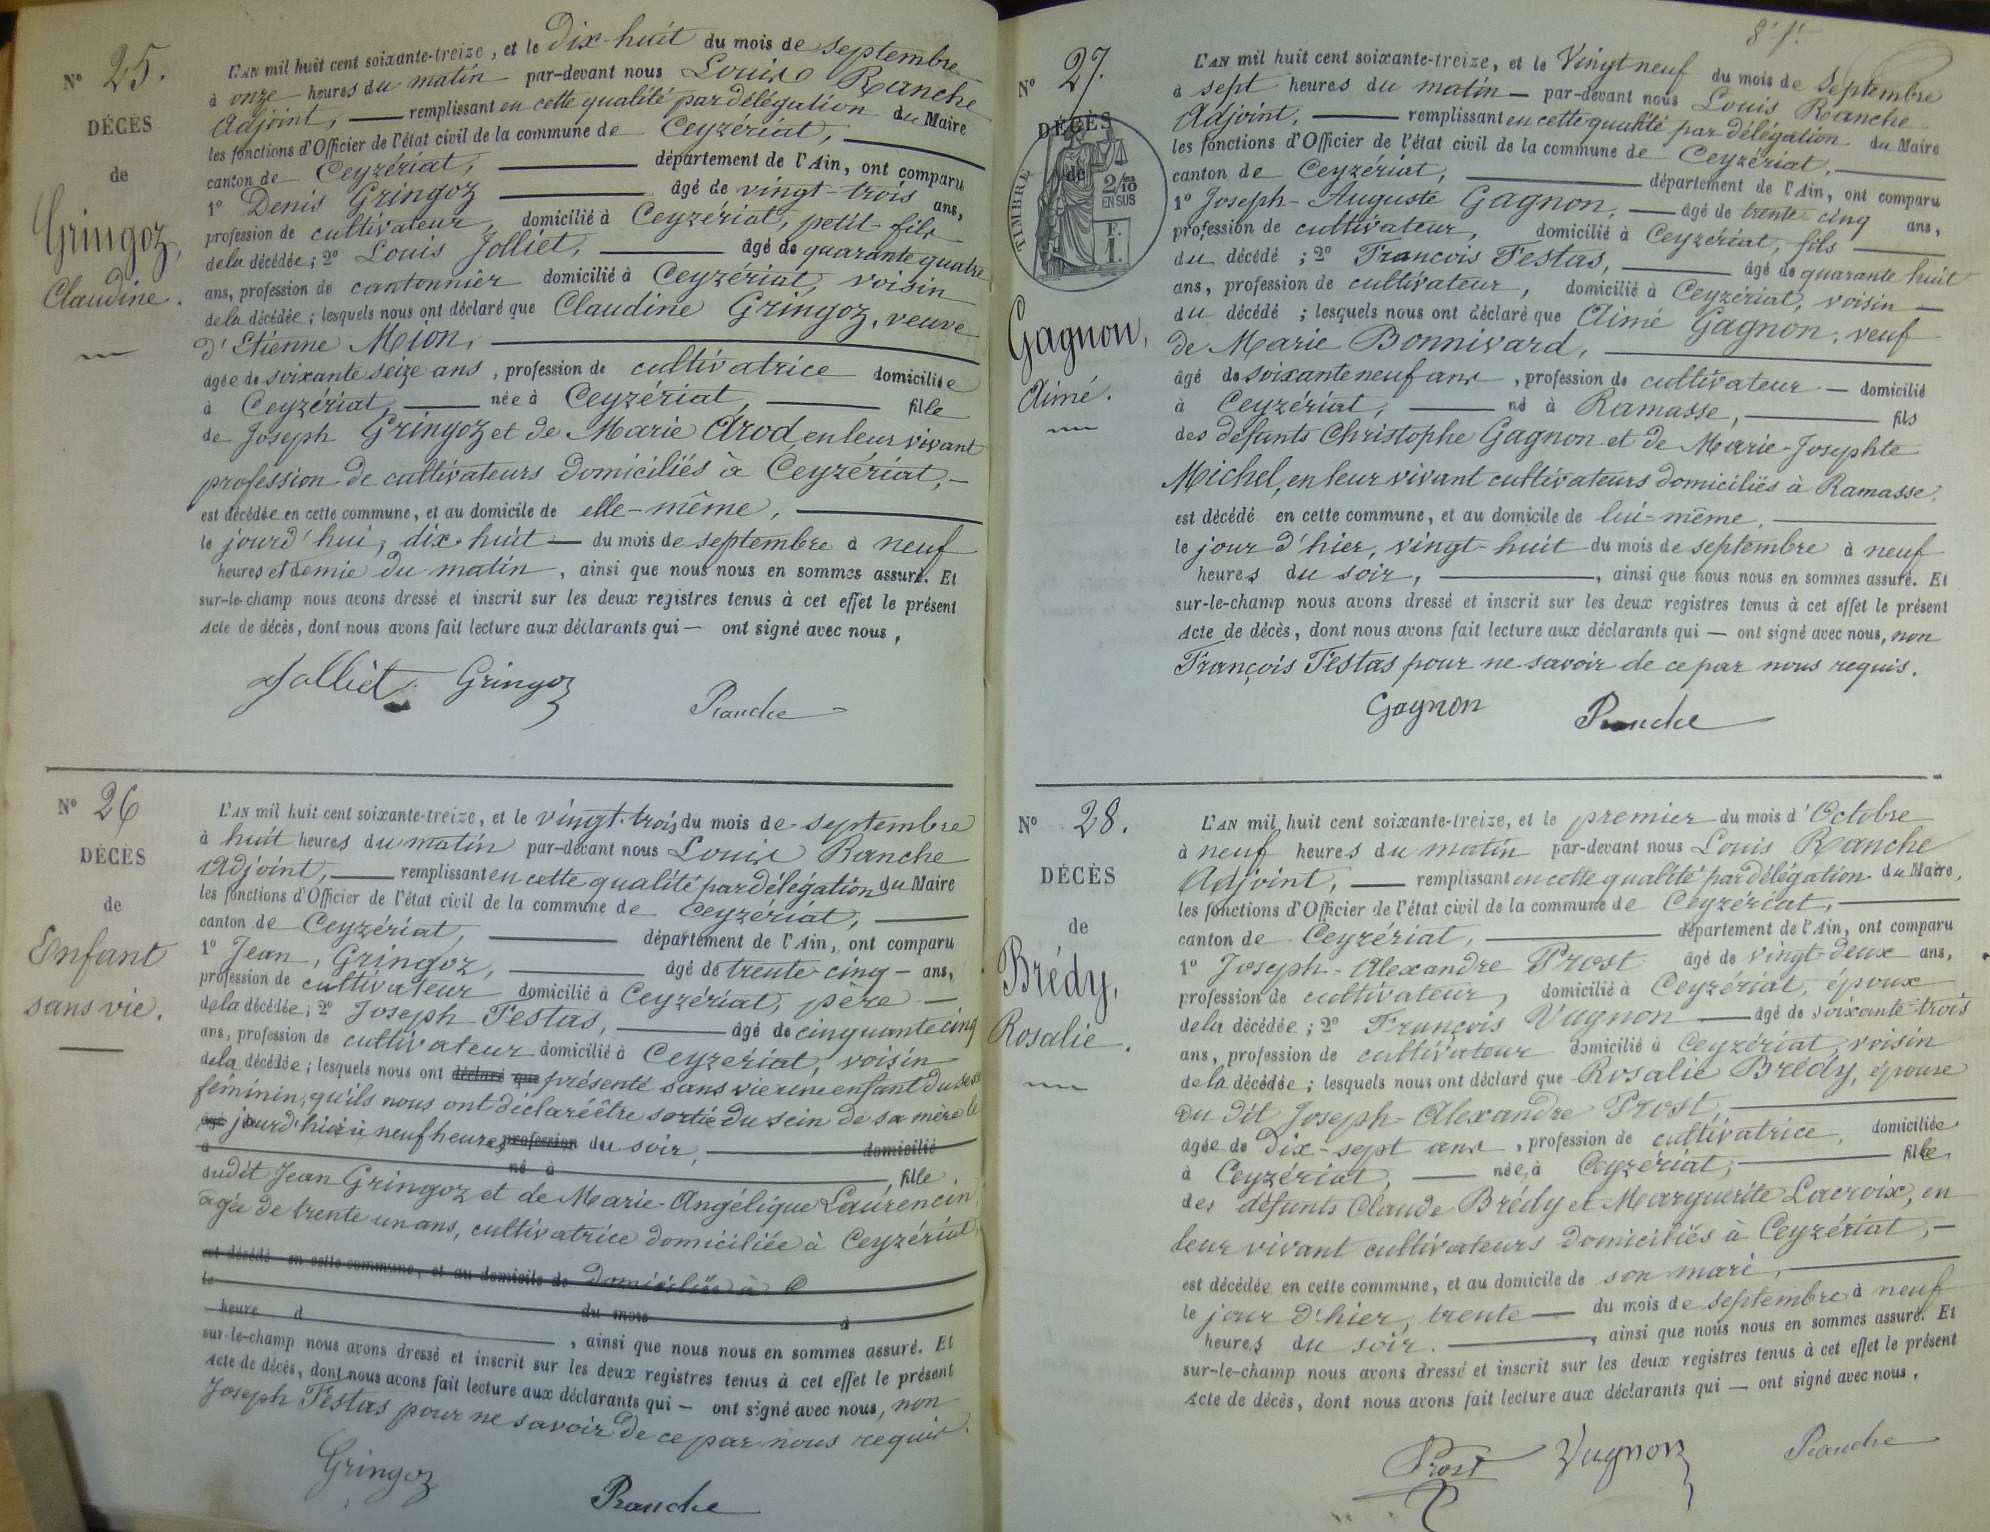 N° 25.
DÉCÈS
de
Gringoz,
Claudine.
L'AN mil huit cent soixante-treize, et le Dix-huit du mois de septembre
à onze heures du matin par-devant nous Louis Ranche
Adjoint, remplissant en cette qualité par délégation du Maire
les fonctions d'Officier de l'état civil de la commune de Ceyzériat,
canton de Ceyzériat, département de l'Ain, ont comparu
1° Denis Gringoz âgé de vingt-trois ans,
profession de cultivateur, domicilié à Ceyzériat, petit-fils
de la décédée ; 2° Louis Jolliet, âgé de quarante quatre
ans, profession de cantonnier domicilié à Ceyzériat, voisin
de la décédée ; lesquels nous ont déclaré que Claudine Gringoz, veuve
d'Etienne Mion,
âgée de soixante seize ans, profession de cultivatrice domiciliée
à Ceyzériat, née à Ceyzériat, fille
de Joseph Gringoz et de Marie Arod, en leur vivant
profession de cultivateurs domiciliés à Ceyzériat,
est décédée en cette commune, et au domicile de elle-même,
le jourd'hui, dix-huit du mois de septembre à neuf
heures et demie du matin, ainsi que nous nous en sommes assuré. Et
sur-le-champ nous avons dressé et inscrit sur les deux registres tenus à cet effet le présent
Acte de décès, dont nous avons fait lecture aux déclarants qui — ont signé avec nous,
Jolliet Gringoz
Ranche
N° 26
DÉCÈS
de
Enfant
sans vie.
L'AN mil huit cent soixante-treize, et le vingt-trois du mois de septembre
à huit heures du matin par-devant nous Louis Ranche
Adjoint, remplissant en cette qualité par délégation du Maire
les fonctions d'Officier de l'état civil de la commune de Ceyzériat,
canton de Ceyzériat, département de l'Ain, ont comparu
1° Jean, Gringoz, âgé de trente-cinq — ans,
profession de cultivateur domicilié à Ceyzériat, père —
de la décédée ; 2° Joseph Festas, âgé de cinquante cinq
ans, profession de cultivateur domicilié à Ceyzériat, voisin
de la décédée ; lesquels nous ont déclaré que présenté sans vie une enfant du sexe
féminin, qu'ils nous ont déclaré être sortie du sein de sa mère le
âgé jour d'hier à neuf heures profession du soir, domicilié
à né à , fille
dudit Jean Gringoz et de Marie-Angélique Laurencin
agée de trente un ans, cultivatrice domiciliée à Ceyzériat,
est décédé en cette commune, et au domicile de domiciliés à C
le
heure d du mois à
, ainsi que nous nous en sommes assuré. Et
sur-le-champ nous avons dressé et inscrit sur les deux registres tenus à cet effet le présent
Acte de décès, dont nous avons fait lecture aux déclarants qui — ont signé avec nous, non
Joseph Festas pour ne savoir de ce par nous requis.
Gringoz
Ranche
8e ft.
N° 27.
DÉCÈS
de
TIMBRE
2/10 EN SUS
F. 1.
Gagnon,
Aimé.
L'AN mil huit cent soixante-treize, et le Vingt neuf du mois de septembre
à sept heures du matin — par-devant nous Louis Ranche
Adjoint, remplissant en cette qualité par délégation du Maire
les fonctions d'Officier de l'état civil de la commune de Ceyzériat,
canton de Ceyzériat, département de l'Ain, ont comparu
1° Joseph-Auguste Gagnon, — âgé de trente-cinq ans,
profession de cultivateur, domicilié à Ceyzériat, fils
du décédé ; 2° Francois Festas, âgé de quarante huit
ans, profession de cultivateur, domicilié à Ceyzériat, voisin —
du décédé ; lesquels nous ont déclaré que Aimé Gagnon, veuf
de Marie Bonnivard,
âgé de soixante neuf ans, profession de cultivateur — domicilié
à Ceyzériat, né à Ramasse, fils
des défunts Christophe Gagnon et de Marie-Josephte
Michel, en leur vivant cultivateurs domiciliés à Ramasse,
est décédé en cette commune, et au domicile de lui-même,
le jour d'hier, vingt-huit du mois de septembre à neuf
heures du soir, , ainsi que nous nous en sommes assuré. Et
sur-le-champ nous avons dressé et inscrit sur les deux registres tenus à cet effet le présent
Acte de décès, dont nous avons fait lecture aux déclarants qui — ont signé avec nous, non
François Festas pour ne savoir de ce par nous requis.
Gagnon Ranche
N° 28.
DÉCÈS
de
Brédy,
Rosalie.
L'AN mil huit cent soixante-treize, et le premier du mois d'Octobre
à neuf heures du matin par-devant nous Louis Ranche
Adjoint, — remplissant en cette qualité par délégation du Maire,
les fonctions d'Officier de l'état civil de la commune de Ceyzériat,
canton de Ceyzériat, département de l'Ain, ont comparu
1° Joseph-Alexandre Prost âgé de vingt-deux ans,
profession de cultivateur, domicilié à Ceyzériat, époux
de la décédée ; 2° François Vugnon — âgé de soixante-trois
ans, profession de cultivateur domicilié à Ceyzériat, voisin
de la décédée ; lesquels nous ont déclaré que Rosalie Brédy, épouse
du dit Joseph-Alexandre Prost,
âgée de dix-sept ans, profession de cultivatrice, domiciliée
à Ceyzériat, — née à Ceyzériat, fille
des défunts Claude Brédy et Marguerite Lacroix, en
leur vivant cultivateurs domiciliés à Ceyzériat, —
est décédée en cette commune, et au domicile de son mari,
le jour d'hier, trente — du mois de septembre à neuf
heures du soir. , ainsi que nous nous en sommes assuré. Et
sur-le-champ nous avons dressé et inscrit sur les deux registres tenus à cet effet le présent
Acte de décès, dont nous avons fait lecture aux déclarants qui — ont signé avec nous.
Prost Vugnon Ranche